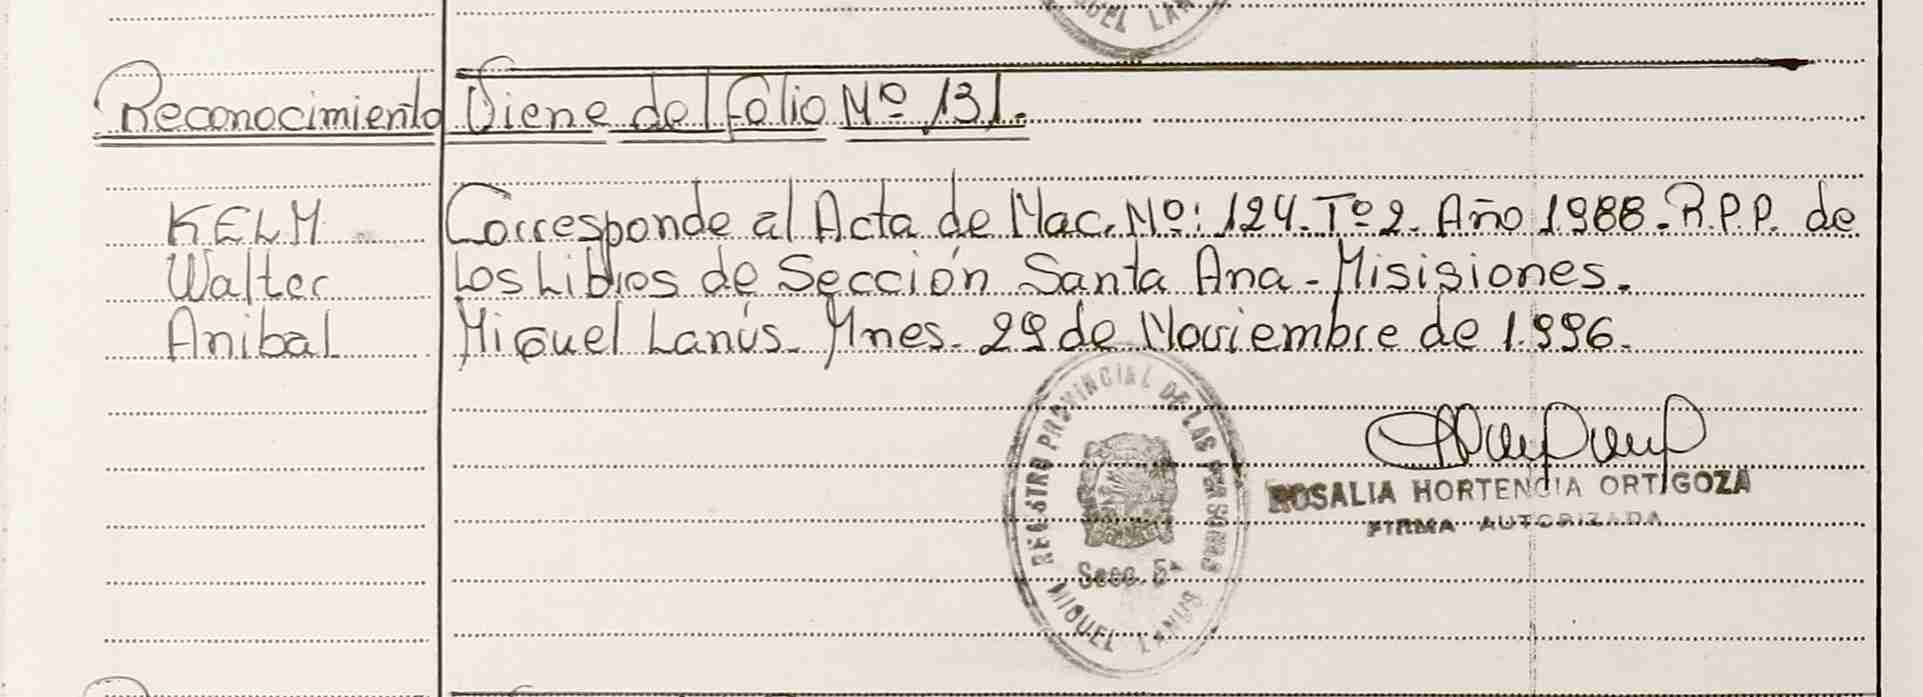 GUEL LAN
Reconocimiento Viene del folio Nº 131.
KELM Corresponde al Acta de Nac. Nº: 124. Tº 2. Año 1988. R.P.P. de
Walter los Libros de Sección Santa Ana - Misisiones.
Anibal Miguel Lanús. Mnes. 29 de Noviembre de 1.996.
REGISTRO PROVINCIAL DE LAS PERSONAS
Secc. 5ª
MIGUEL LANUS
ROSALIA HORTENCIA ORTIGOZA
FIRMA AUTORIZADA